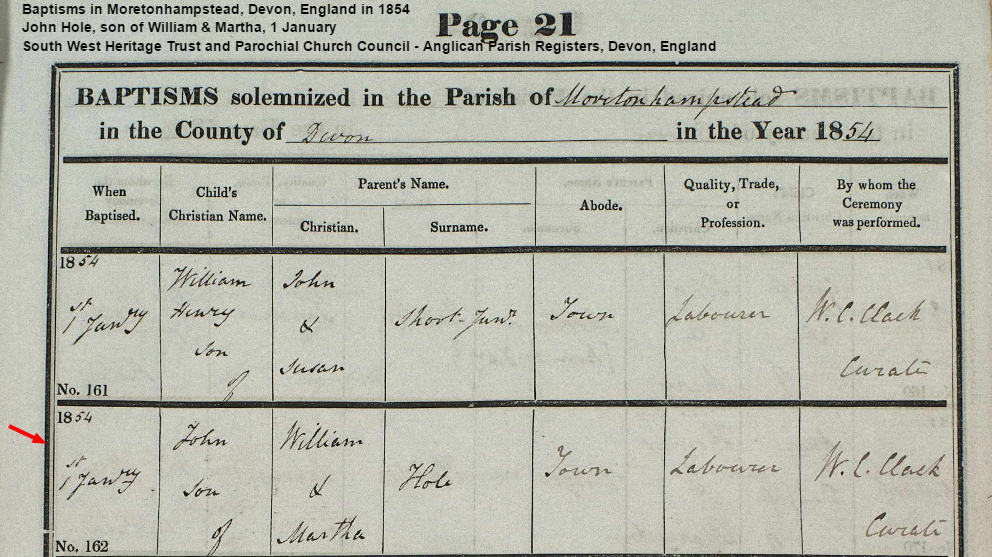 Baptisms in Moretonhampstead, Devon, England in 1854
John Hole, son of William & Martha, 1 January
South West Heritage Trust and Parochial Church Council - Anglican Parish Registers, Devon, England
Page 21
BAPTISMS solemnized in the Parish of Moretonhampstead
in the County of Devon in the Year 1854
When Baptised. Child's Christian Name. Parent's Name. Abode. Quality, Trade, or Profession. By whom the Ceremony was performed.
Christian. Surname.
1854
William John
1st Janry Henry & Short Junr. Town Labourer W. C. Clack
son Susan Curate
of
No. 161
1854
John William
1st Janry son & Hole Town Labourer W. C. Clack
of Martha Curate
No. 162